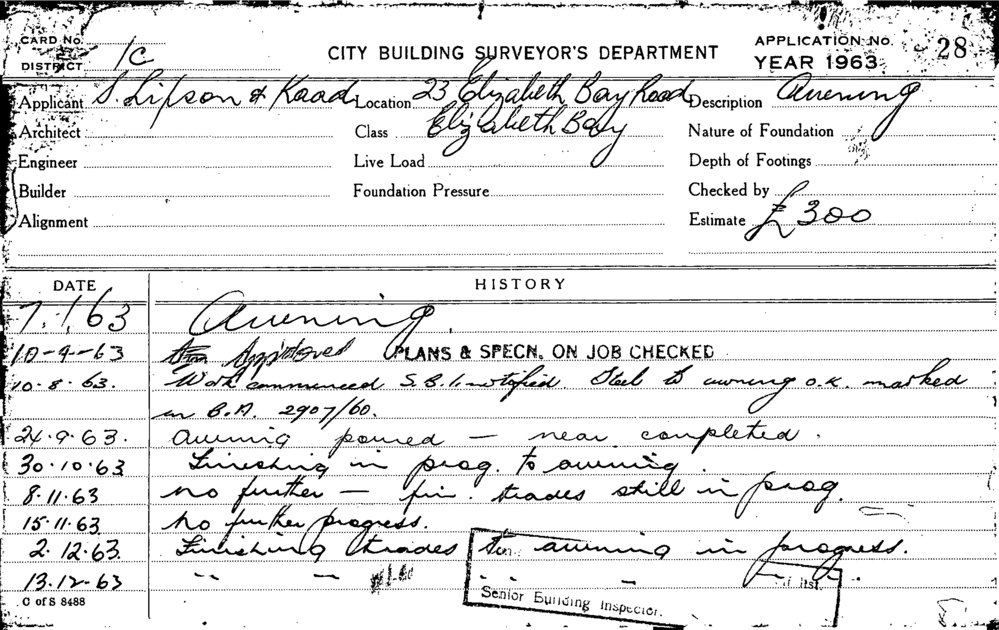 CARD No.
DISTRICT 1C
CITY BUILDING SURVEYOR'S DEPARTMENT
APPLICATION No. 28
YEAR 1963
Applicant S. Lipson & Kaad Location 23 Elizabeth Bay Road Description Awening
Architect Class Elizabeth Bay Nature of Foundation
Engineer Live Load Depth of Footings
Builder Foundation Pressure Checked by
Alignment Estimate £300
DATE HISTORY
7.1.63 Awening
10-4-63 Approved PLANS & SPECN. ON JOB CHECKED
10.8.63. Work commenced S.B.I. notified. Steel to awning o.k. marked
in B.A. 2907/60.
24.9.63. Awning poured — near completed.
30.10.63 Finishing in prog. to awning.
8.11.63 no further — fin. trades still in prog.
15.11.63 No further progress.
2.12.63. Finishing trades awning in progress.
13.12.63 " " " — "
Senior Building Inspector.
C of S 8488